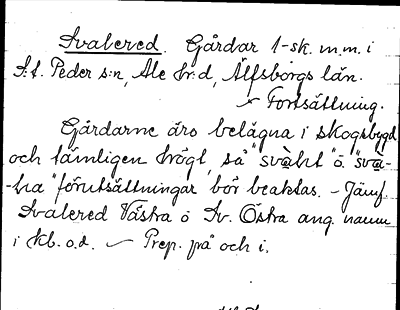 Svalered. Gårdar 1-sk. m.m. i
S:t. Peder s:n, Ale hr:d, Älfsborgs län.
Fortsättning.
Gårdarne äro belägna i skogsbygd
och tämligen högt, så "svält" o. "svä-
-lta" förutsättningar bör beaktas. – Jämf.
Svalered Västra o Sv. Östra ang. namn
i kb. o.d. – Prep. på och i.